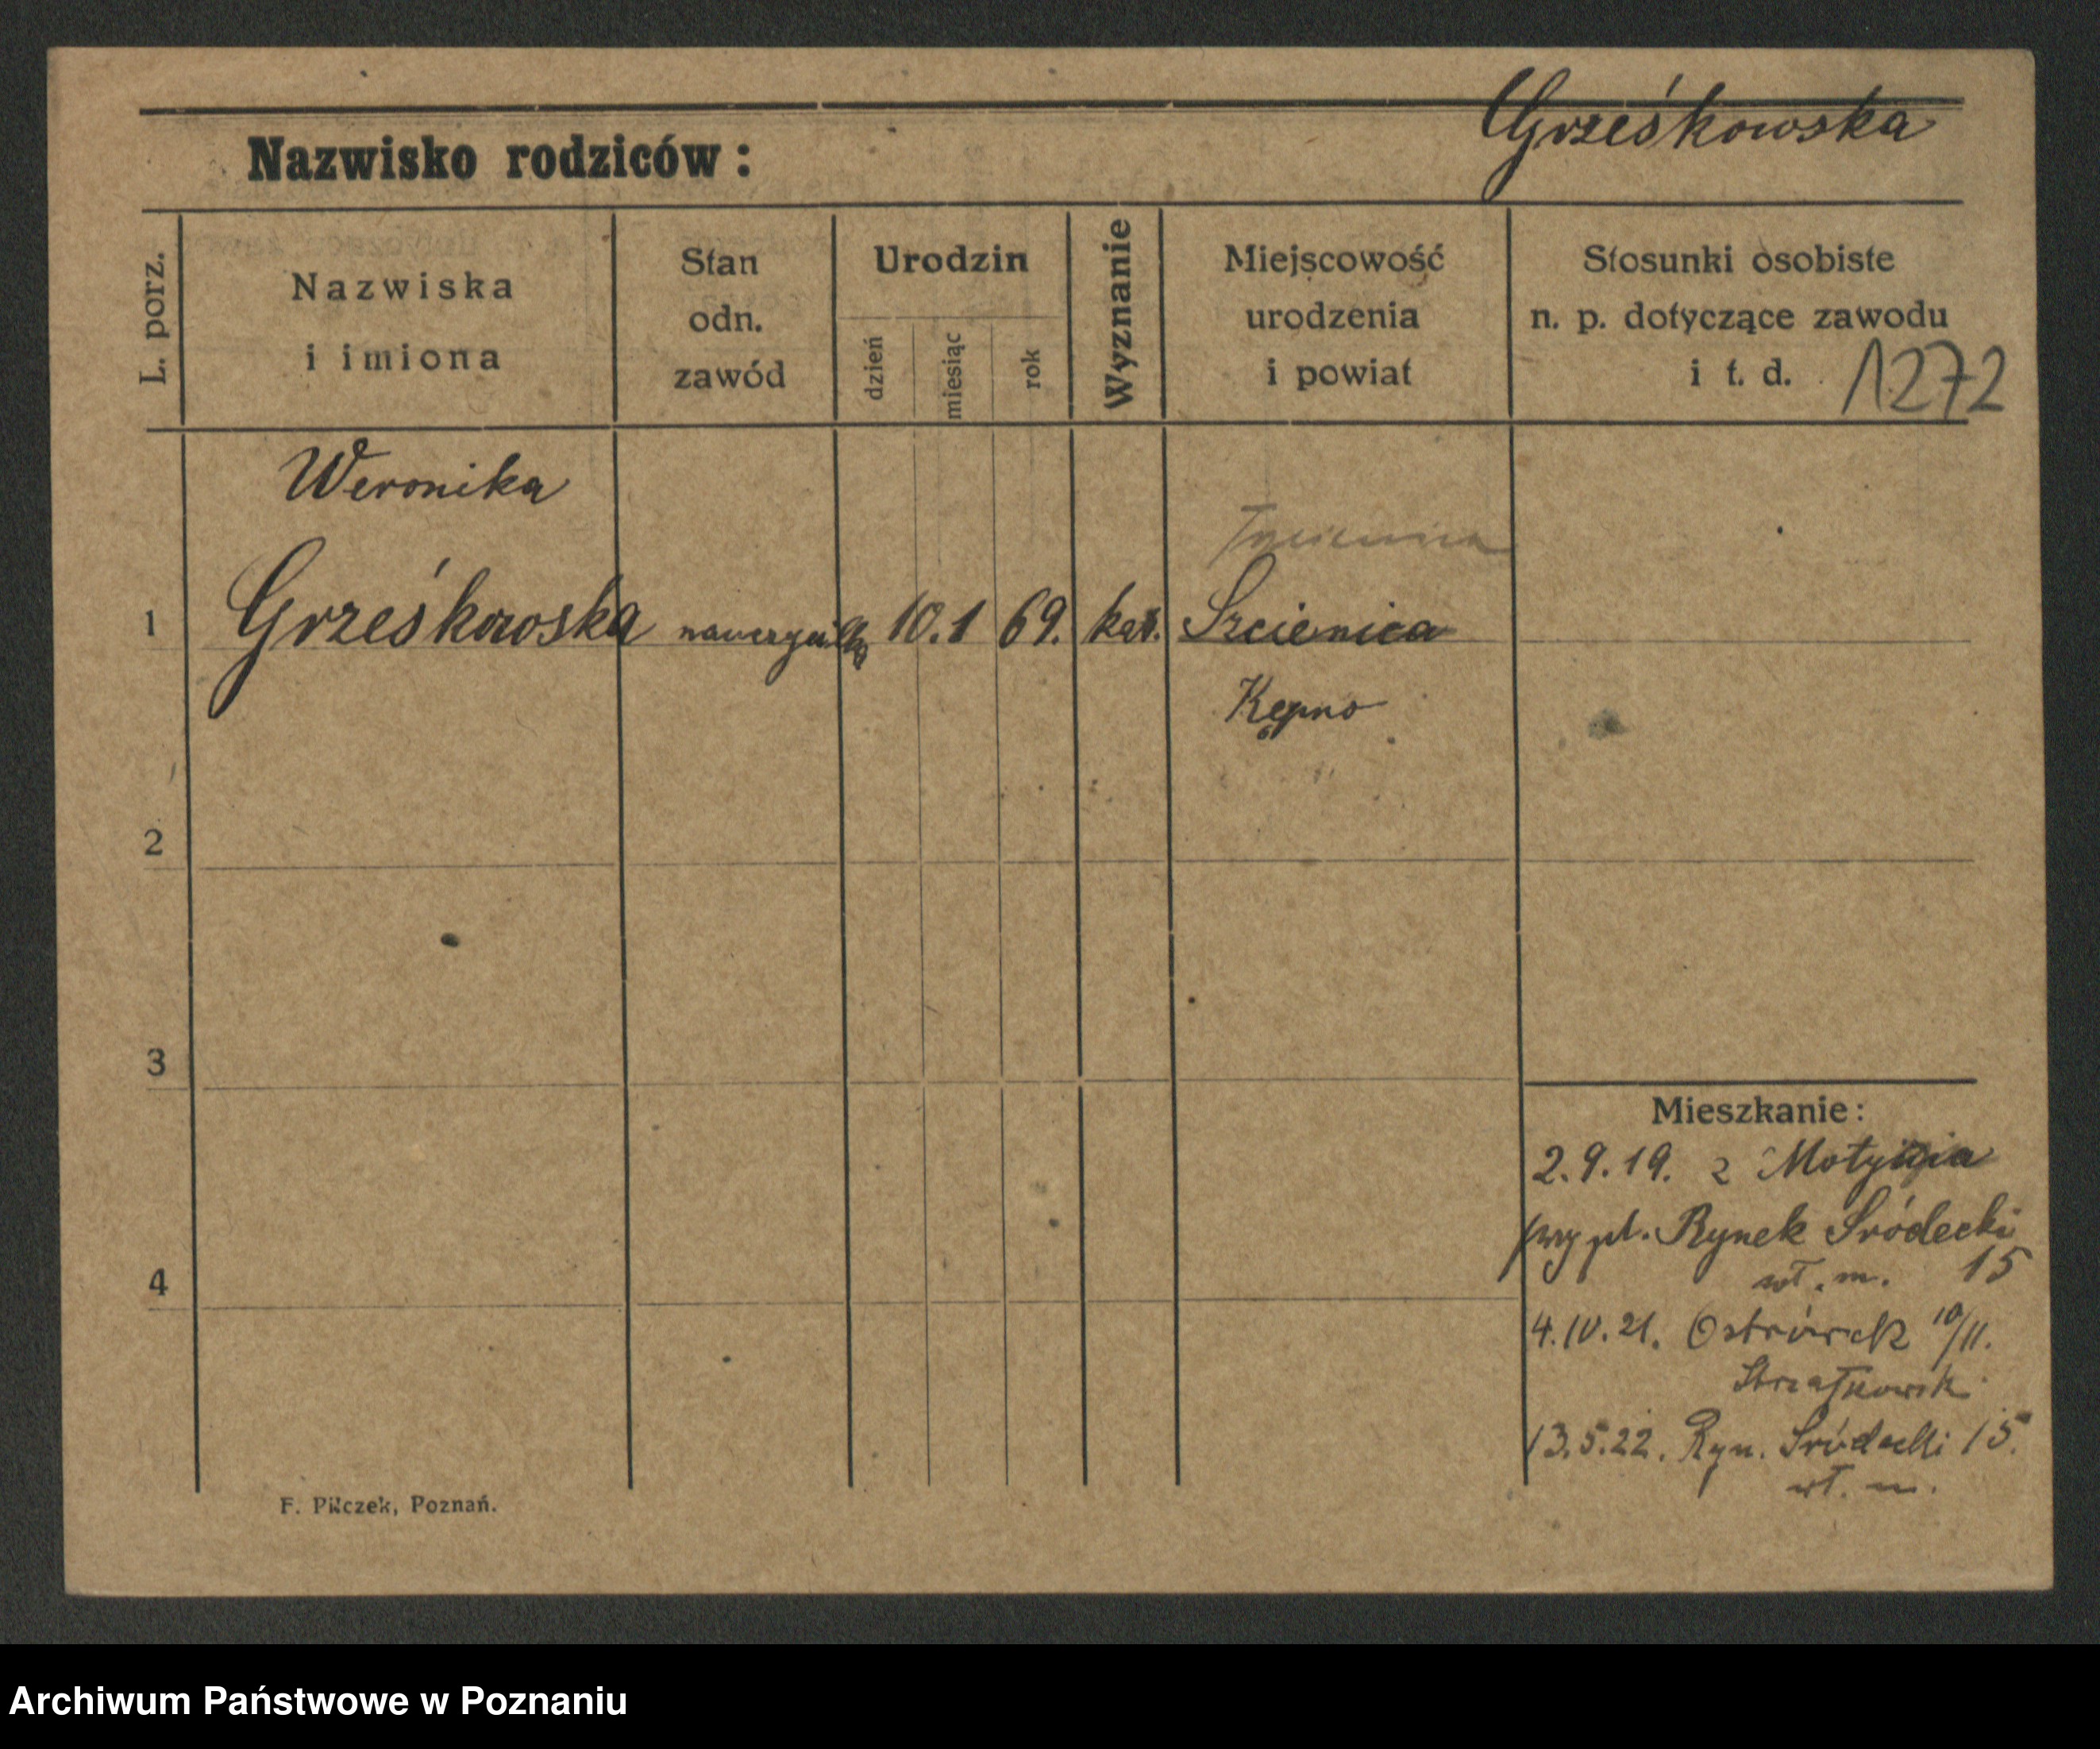 Grześkowska
Nazwisko rodziców:
L. porz.
Nazwiska
i imiona
Stan
odn.
zawód
Urodzin
dzień
miesiąc
rok
Wyznanie
Miejscowość
urodzenia
i powiat
Stosunki osobiste
n. p. dotyczące zawodu
i t. d.
1272
Weronika
1 Grześkowska 10. 1 69. kat.
Kępno
2
3
4
Mieszkanie:
2.9.19. z
pl. Rynek Śródecki
wł. m. 15
4.IV.21. Ostrówek 10/11.
13.5.22. Ryn. Śródecki 15.
wł. m.
F. Pilczek, Poznań.
Archiwum Państwowe w Poznaniu